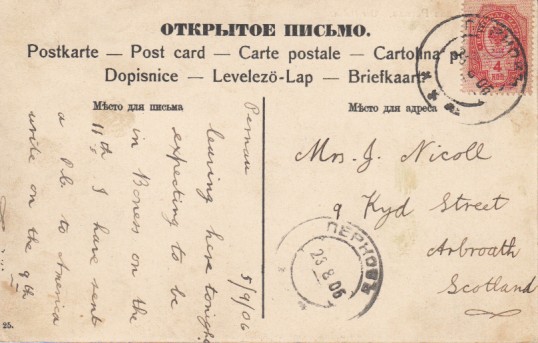 ОТКРЫТОЕ ПИСЬМО.
Postkarte — Post card — Carte postale — Cartolina
Dopisnice — Levelező-Lap — Briefkaart
Мѣсто для письма
Мѣсто для адреса
4
КОП
ПЕРНОВЪ
Pernau
5/9/06
leaving here tonight
expecting to be
in Boness on the
11th I have sent
a P.b. to America
write on the 9th
Mrs. J. Nicoll
9 Kyd Street
Arbroath
Scotland
ПЕРНОВЪ
23 8 06
25.